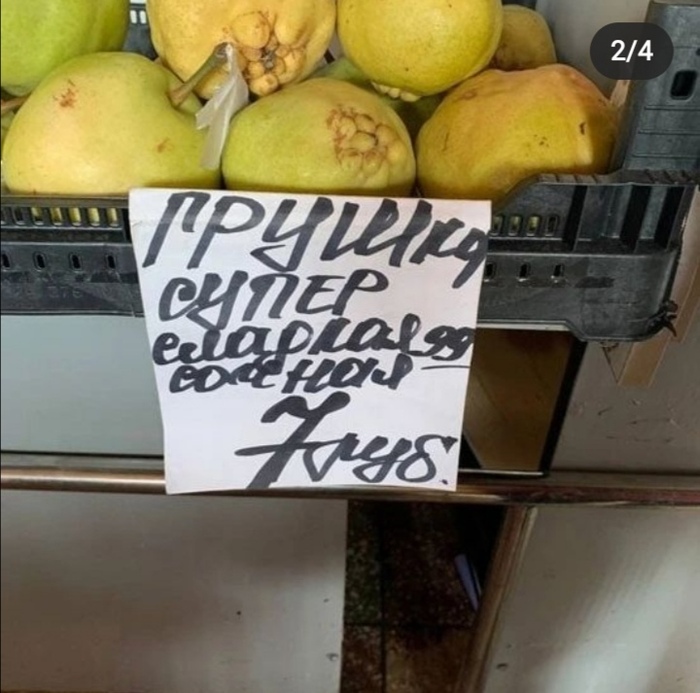 2/4
ГРУШКА
СУПЕР
сладкая
сочная
7 руб.